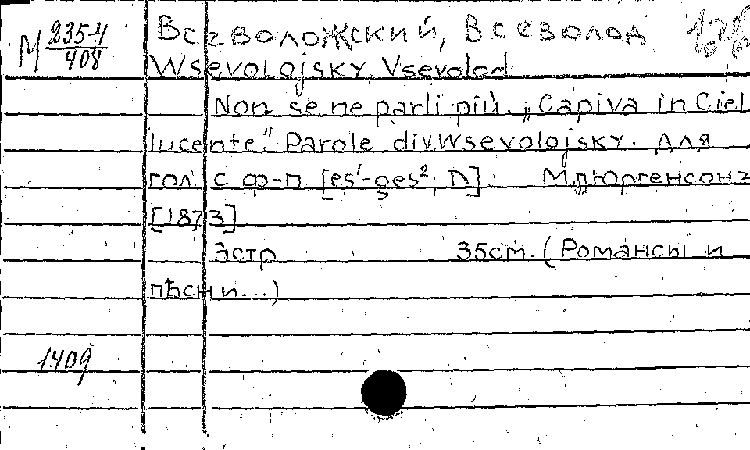 М 235-4/408
Всеволожский, Всеволод
Wsevolojsky, Vsevolod
Non se ne parli più. „Capiva in Ciel
lucente." Parole di v. Wsevolojsky. Для
гол. с ф-п [es¹-ges²; D]. М. П. Юргенсонъ
[1873]
3 стр 35 см. (Романсы и
пѣсни...)
1409